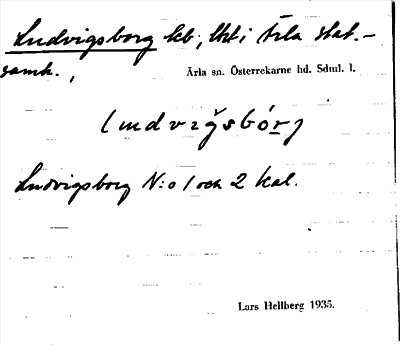 Ludvigsborg kb, lht i Ärla stat.-
samh.,
Ärla sn. Österrekarne hd. Sdml. l.
ludvigsbórj
Ludvigsborg N:o 1 och 2 kal.
Lars Hellberg 1935.